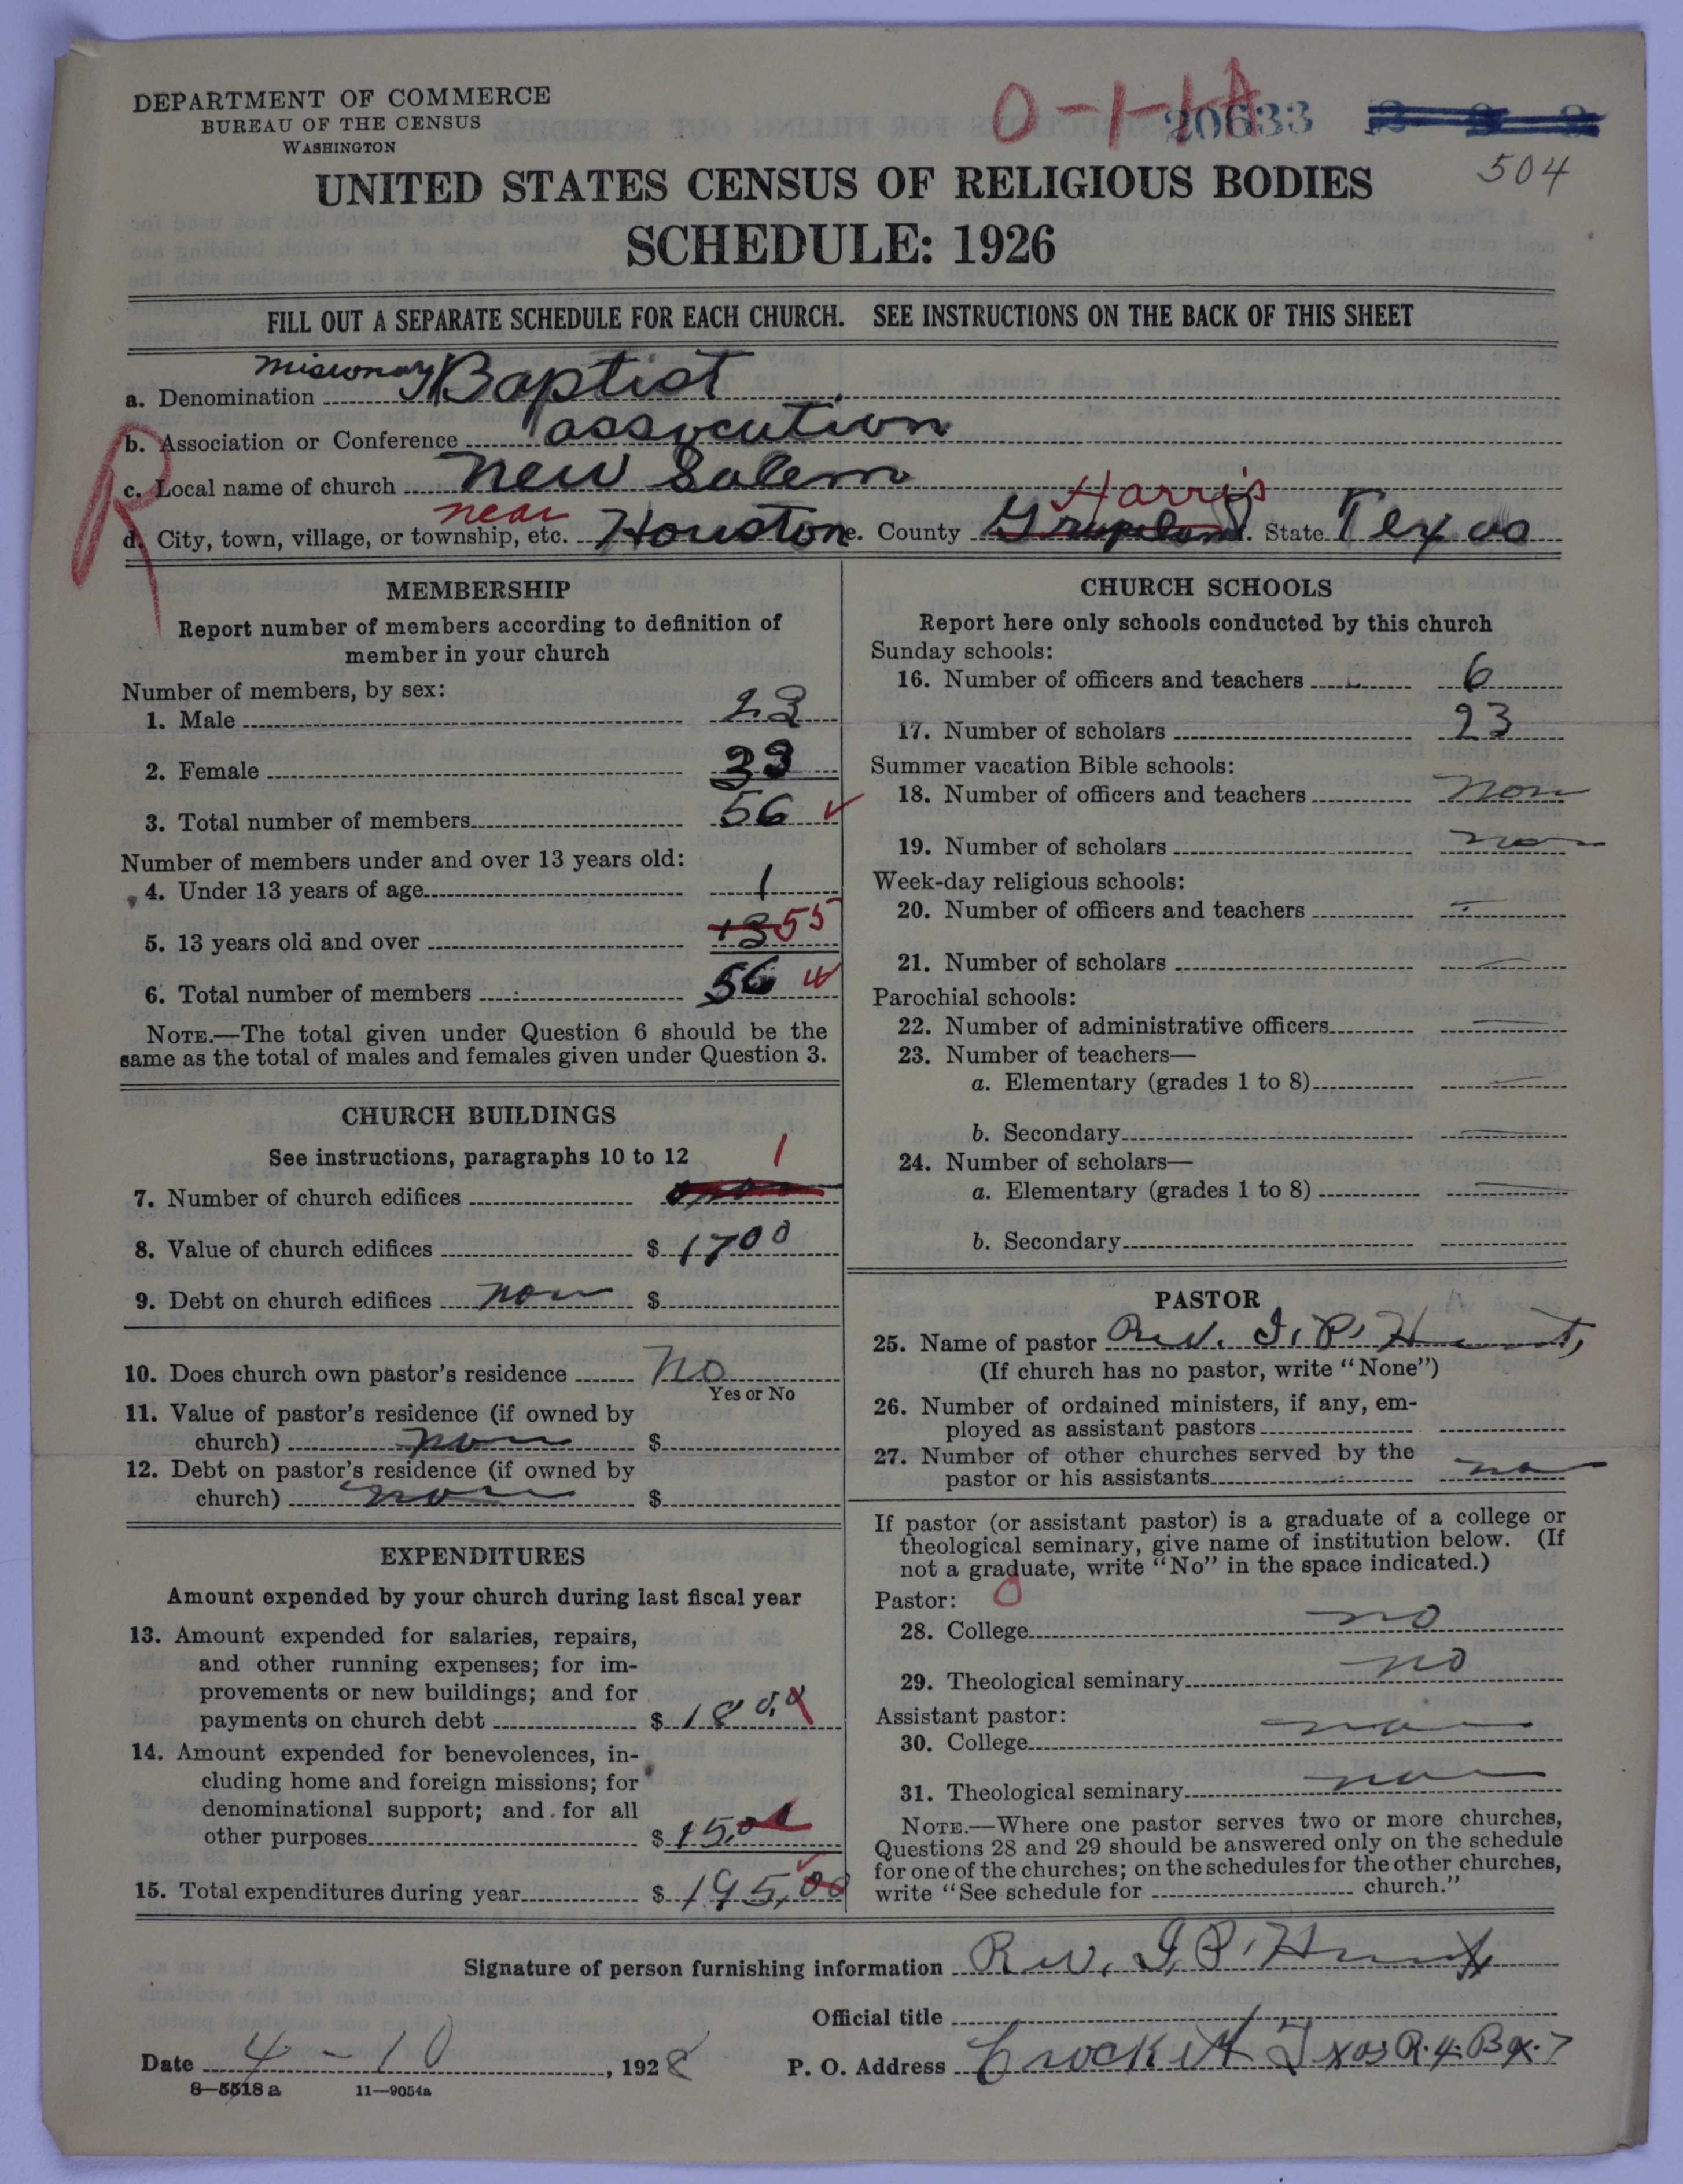 DEPARTMENT OF COMMERCE
BUREAU OF THE CENSUS
WASHINGTON
0-1-1A
20633
504
UNITED STATES CENSUS OF RELIGIOUS BODIES
SCHEDULE: 1926
FILL OUT A SEPARATE SCHEDULE FOR EACH CHURCH. SEE INSTRUCTIONS ON THE BACK OF THIS SHEET
a. Denomination Misionary Baptist
b. Association or Conference assocution
c. Local name of church New Salem
R
d. City, town, village, or township, etc. near Houston e. County Grapeland Harris f. State Texas
MEMBERSHIP
Report number of members according to definition of
member in your church
Number of members, by sex:
1. Male 23
2. Female 33
3. Total number of members 56
Number of members under and over 13 years old:
4. Under 13 years of age 1
5. 13 years old and over 55
6. Total number of members 56
NOTE.—The total given under Question 6 should be the
same as the total of males and females given under Question 3.
CHURCH BUILDINGS
See instructions, paragraphs 10 to 12
7. Number of church edifices 1
8. Value of church edifices $ 1700
9. Debt on church edifices non $
10. Does church own pastor's residence No
Yes or No
11. Value of pastor's residence (if owned by
church) non $
12. Debt on pastor's residence (if owned by
church) non $
EXPENDITURES
Amount expended by your church during last fiscal year
13. Amount expended for salaries, repairs,
and other running expenses; for im-
provements or new buildings; and for
payments on church debt $ 180.0
14. Amount expended for benevolences, in-
cluding home and foreign missions; for
denominational support; and for all
other purposes $ 15.00
15. Total expenditures during year $ 195.00
CHURCH SCHOOLS
Report here only schools conducted by this church
Sunday schools:
16. Number of officers and teachers 6
17. Number of scholars 23
Summer vacation Bible schools:
18. Number of officers and teachers non
19. Number of scholars non
Week-day religious schools:
20. Number of officers and teachers
21. Number of scholars
Parochial schools:
22. Number of administrative officers
23. Number of teachers—
a. Elementary (grades 1 to 8)
b. Secondary
24. Number of scholars—
a. Elementary (grades 1 to 8)
b. Secondary
PASTOR
25. Name of pastor Rev. I. P. Hunt,
(If church has no pastor, write "None")
26. Number of ordained ministers, if any, em-
ployed as assistant pastors
27. Number of other churches served by the
pastor or his assistants no
If pastor (or assistant pastor) is a graduate of a college or
theological seminary, give name of institution below. (If
not a graduate, write "No" in the space indicated.)
Pastor: 0
28. College no
29. Theological seminary no
Assistant pastor:
30. College non
31. Theological seminary non
NOTE.—Where one pastor serves two or more churches,
Questions 28 and 29 should be answered only on the schedule
for one of the churches; on the schedules for the other churches,
write "See schedule for church."
Signature of person furnishing information Rev. I. P. Hunt
Official title
Date 4 - 10, 1928 P. O. Address Crockett Txas R. 4. Bx. 7
8-5518 a 11-9054a